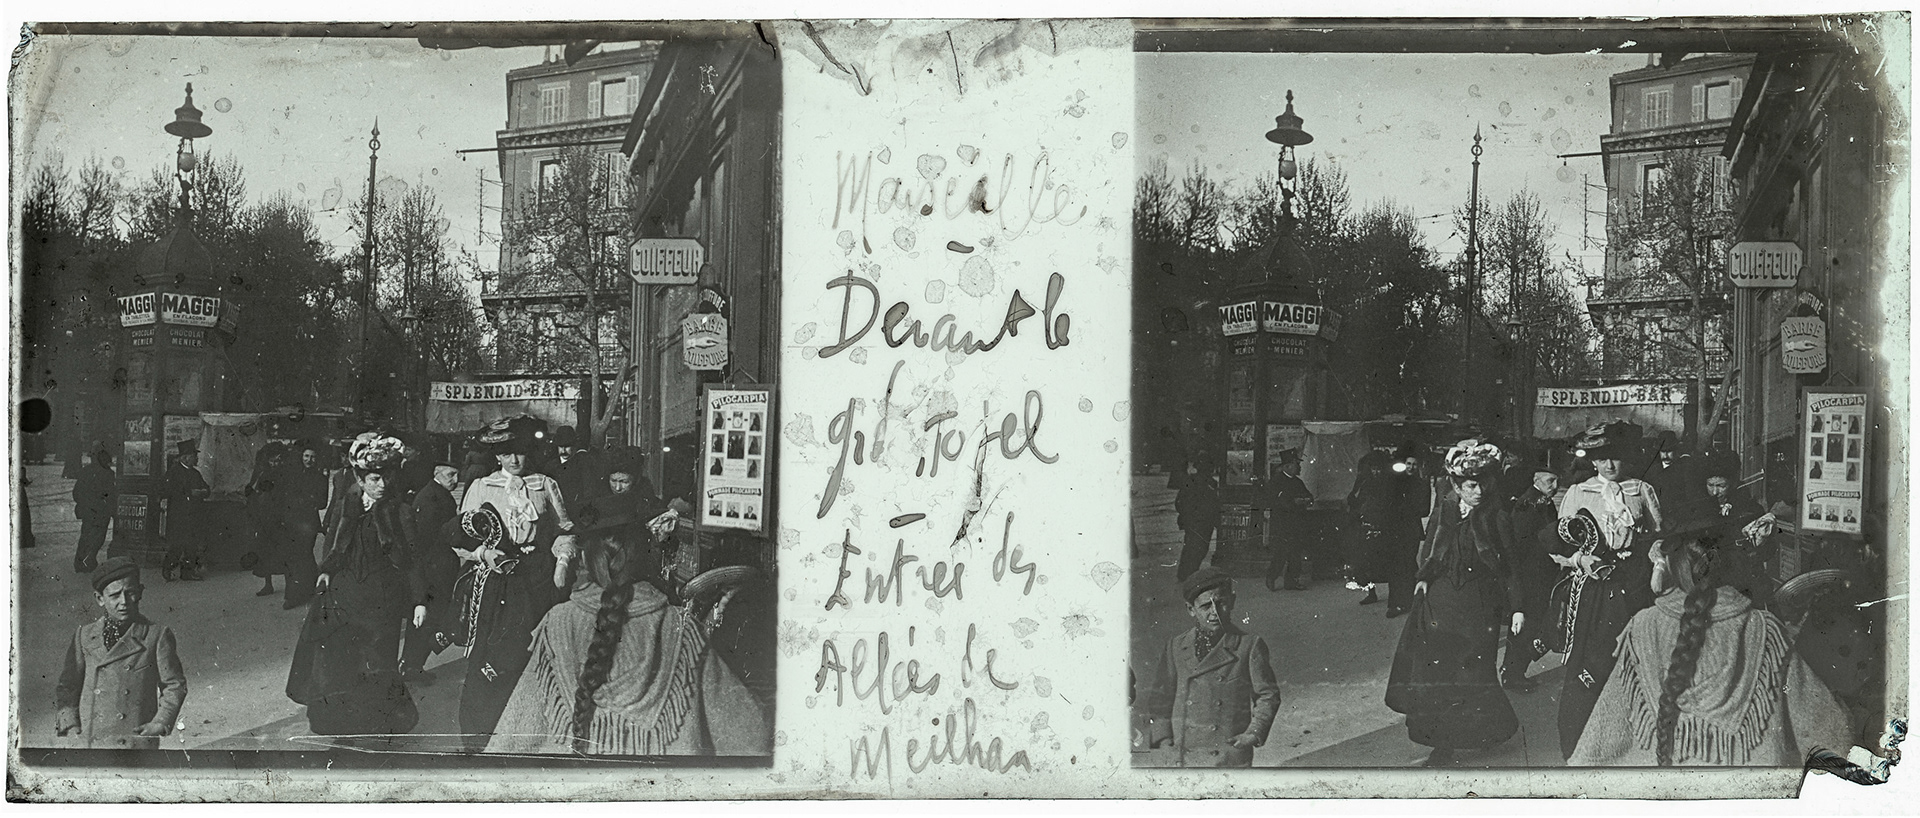 MAGGI MAGGI
EN TABLETTES EN FLACONS
CHOCOLAT MENIER
CHOCOLAT MENIER
COIFFEUR
BARBE
COIFFURE
+SPLENDID-BAR
PILOCARPIA
POMMADE PILOCARPIA
CHOCOLAT
MENIER
Marseille
-
Devant le
gd
-
Entrée des
Allées de
Meilhan
MAGGI MAGGI
EN TABLETTES EN FLACONS
CHOCOLAT MENIER
CHOCOLAT MENIER
COIFFEUR
BARBE
COIFFURE
+SPLENDID-BAR
PILOCARPIA
POMMADE PILOCARPIA
CHOCOLAT
MENIER